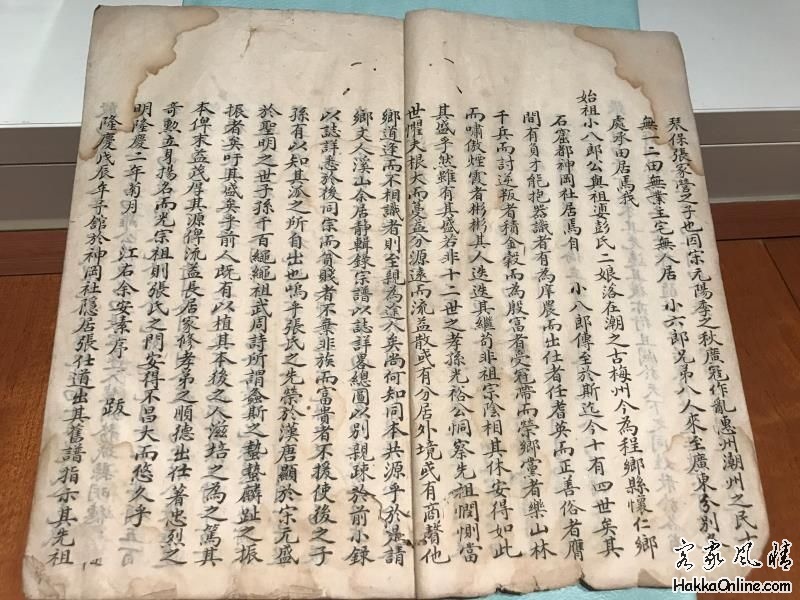 琴保張家營之子也因宋元陽季之秋廣寇作亂惠州潮州之民十
無一二田無業主宅無人居 小六郎兄弟八人來至廣東分別
處承田居焉我
始祖小八郎公與祖婆彭氏二娘落在潮之古梅州今為程鄉縣懷仁鄉
石窟都神岡社居焉自 小八郎傳至於斯迄今十有四世矣其
間有負才能抱器識者有為庠農而出仕者任耆英而正善俗者膺
千兵而討逆叛者積金穀而為殷富者受冠帶而榮鄉黨者樂山林
而嘯傲煙霞者彬彬其人迭迭其繼苟非祖宗陰相其休安得如此
其盛乎然雖有其盛若非十二世之孝孫光裕公洞察先祖憫惻當
世懼夫根大而蔓益分源遠而流益散或有分居外境或有商贅他
鄉道逢而不相識者則至親為途人矣尚何知同本共源乎於是請
鄉文人溪山余居靜輯錄宗譜以誌詳畧總圖以別親疎於前小錄
以誌詳悉於後同宗而貧賤者不棄非族而富貴者不援使後之子
孫有以知其派之所自出也嗚乎張氏之先榮於漢唐顯於宗元盛
於聖明之世子孫千百繩繩祖武周詩所謂螽斯之蟄蟄麟趾之振
振者矣吁其盛矣乎前人既有以植其本後之人滋培之為之篤其
本俾末益茂厚其源俾流益長居家修孝弟之順德出仕著忠烈之
奇勲立身揚名而光宗祖則張氏之門安得不昌大而悠久乎
明隆慶二年南月 江右余安素序 跋
隆慶戊辰年予舘於神岡社隱居張仕道出其舊譜指示其先祖
客家風情
HakkaOnline.com